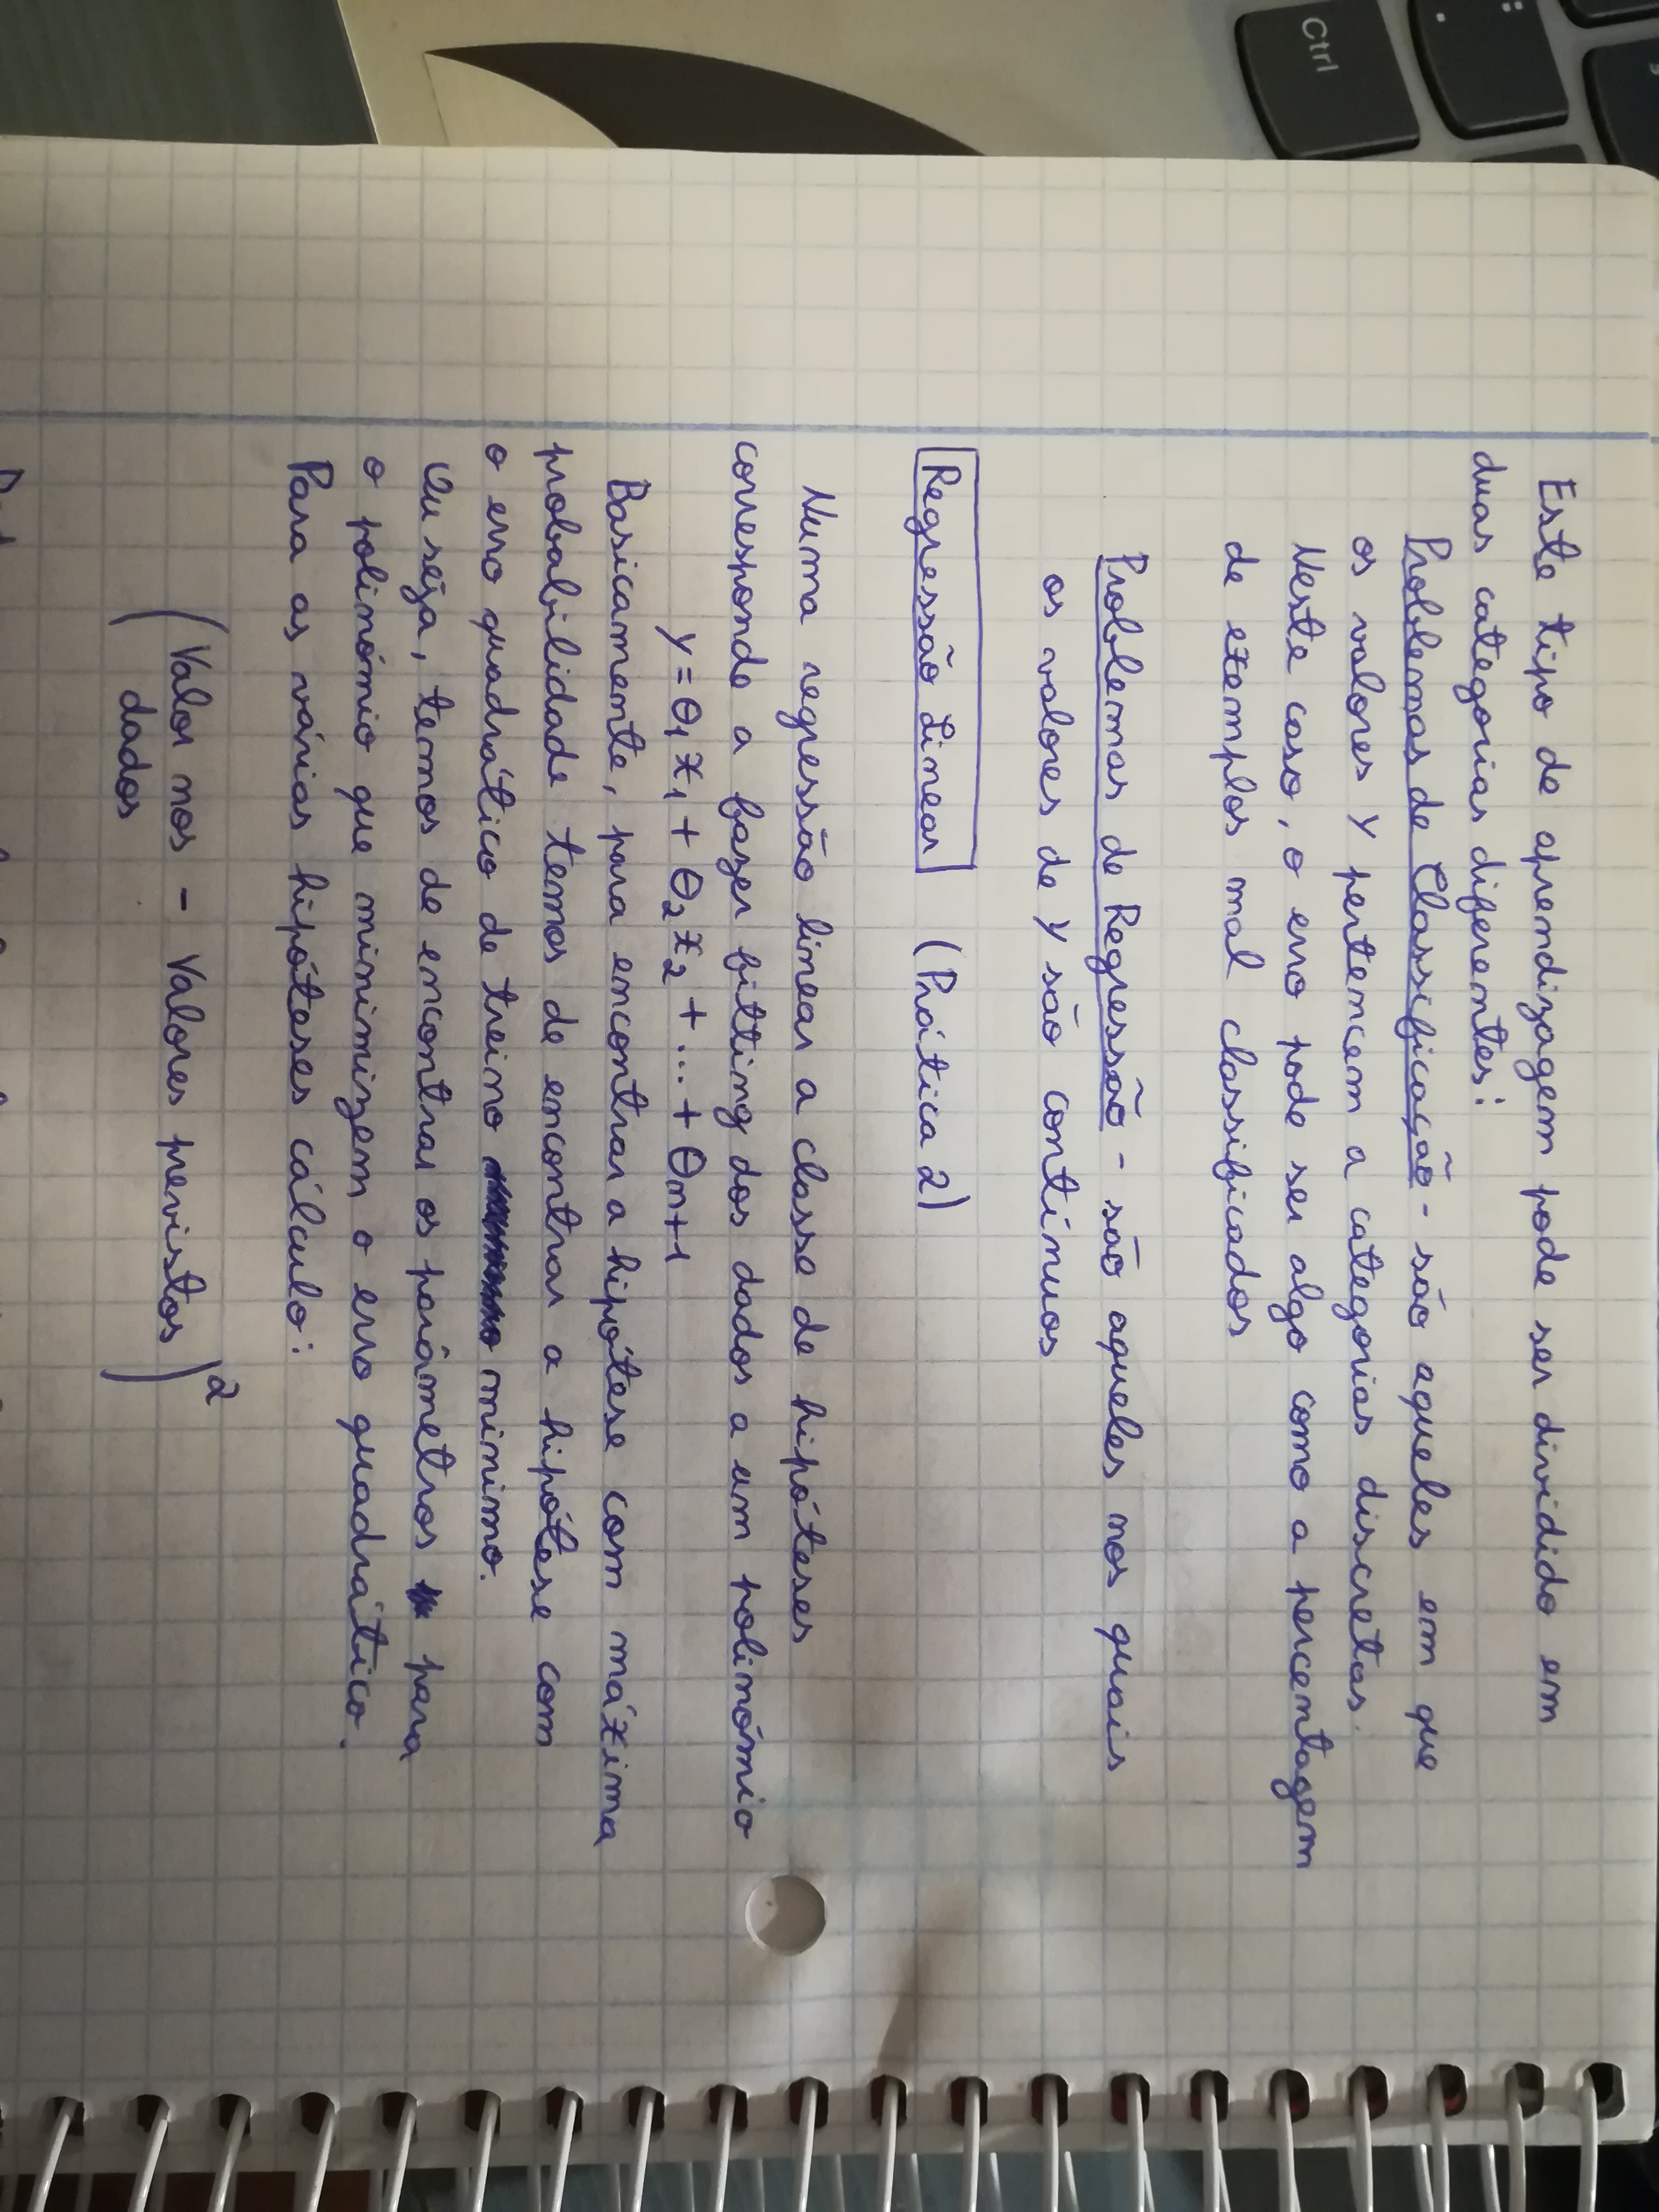 Este tipo de aprendizagem pode ser dividido em
duas categorias diferentes:
Problemas de Classificação - são aqueles em que
os valores Y pertencem a categorias discretas.
Neste caso, o erro pode ser algo como a percentagem
de exemplos mal classificados
Problemas de Regressão - são aqueles nos quais
os valores de Y são contínuos
Regressão Linear (Prática 2)
Numa regressão linear a classe de hipóteses
corresponde a fazer fitting dos dados a um polinómio
y = θ1 x1 + θ2 x2 + ... + θn+1
Basicamente, para encontrar a hipótese com máxima
probabilidade temos de encontrar a hipótese com
o erro quadrático de treino minimo.
Ou seja, temos de encontrar os parâmetros para
o polinómio que minimizem o erro quadrático.
Para as várias hipóteses cálculo:
(Valor nos - Valores previstos)²
dados
Ctrl